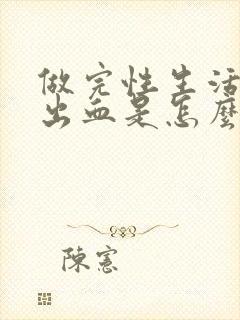 做完性生活
出血是怎麼
陳憲